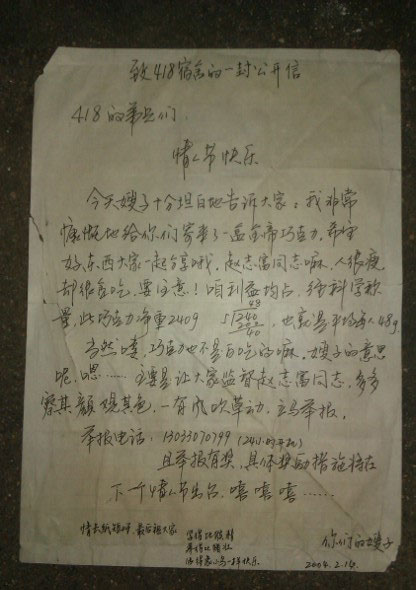 致418宿舍的一封公开信
418的弟兄们:
情人节快乐
今天嫂子十分坦白地告诉大家:我非常
慷慨地给你们寄来了一盒金帝巧克力,希望
好东西大家一起分享哦,赵志富同志嘛,人很瘦,
却很贪吃,要注意!咱利益均占,经科学称
量,此巧克力净重240g 5)240 48 200 40 ,也就是平均每人48g
当然喽,巧克力也不是白吃的嘛,嫂子的意思
呢,嗯……主要是让大家监督赵志富同志,多多
察其颜观其色,一有风吹草动,立马举报。
举报电话:13033070799(24小时开机)
且举报有奖,具体奖励措施将在
下一个情人节出台,嘻嘻嘻……
情长纸短呀 最后祝大家
一样快乐
你们的嫂子
2004.2.14